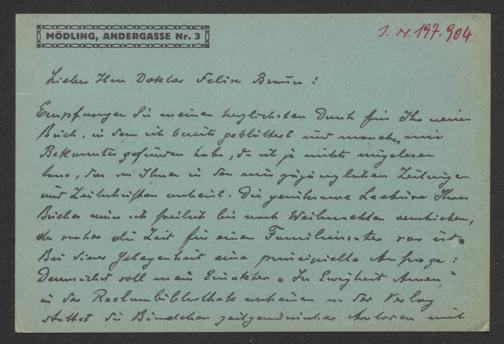 MÖDLING, ANDERGASSE Nr. 3
J. N. 197.904
Lieber Herr Doktor Felix Braun!
Empfangen Sie meinen herzlichsten Dank für Ihr neues
Buch, in dem ich bereits geblättert und manches mir
Bekanntes gefunden habe, da ich ja nichts ungelesen
lasse, das von Ihnen in den mir zugänglichen Zeitungen
und Zeitschriften erscheint. Die genussreiche Lectüre Ihres
Buches muss ich freilich bis nach Weihnachten verschieben,
da vorher die Zeit für einen Familienvater rar ist.
Bei dieser Gelegenheit eine principielle Anfrage:
Demnächst soll mein Einakter „In Ewigkeit Amen"
in der Reclambibliothek erscheinen u. der Verlag
stattet die Bändchen zeitgenössischer Autoren mit